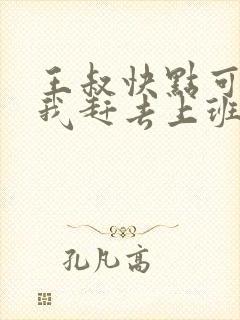 王叔快點可
我赶去上班
孔凡高